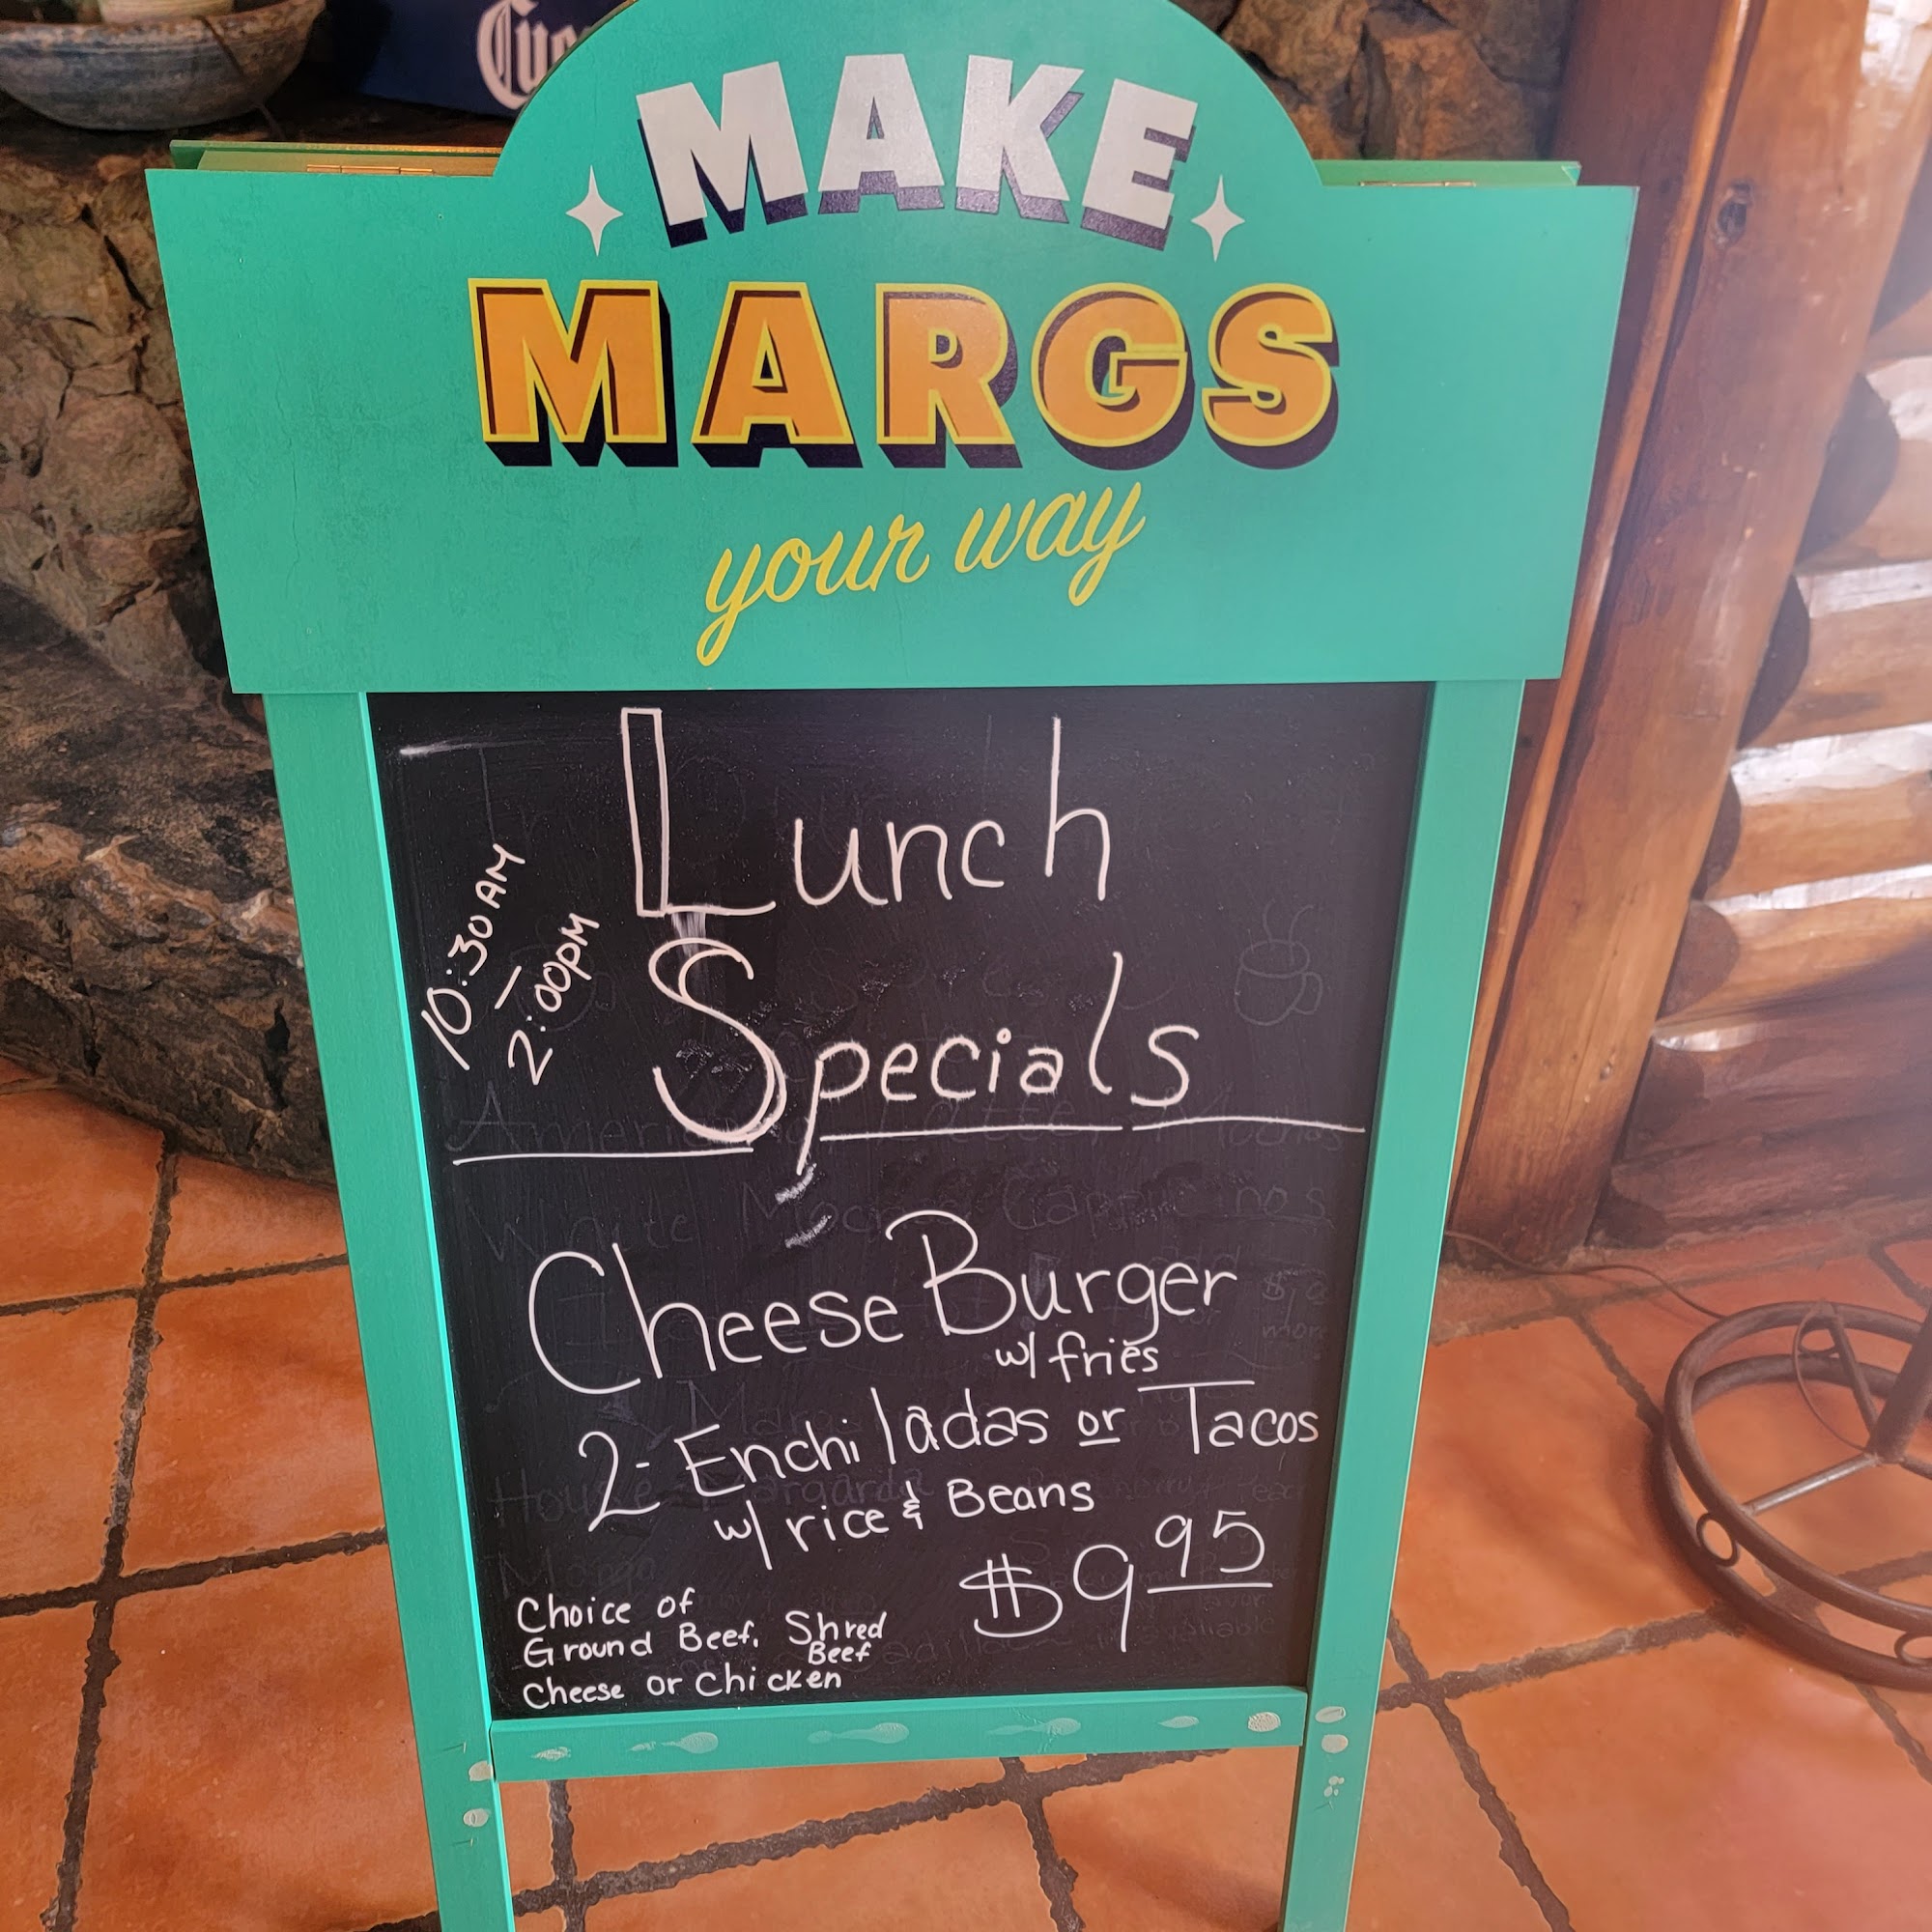 Cue
MAKE
MARGS
your way
Lunch
Specials
10:30AM
–
2:00PM
Cheese Burger
w/ fries
2- Enchiladas or Tacos
w/ rice & Beans
$9.95
Choice of
Ground Beef, Shred
Beef
Cheese or Chicken